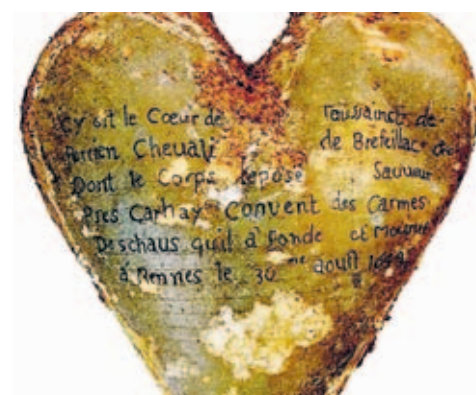 Cy Git le Cœur de Toussainct de
Perrien Chevali de Brefeillac
Dont le Corps repose Sauveur
Pres Carhay Convent des Carmes
Deschaus quil à Fonde et Mourut
à Rennes le 30 me aoust 1649